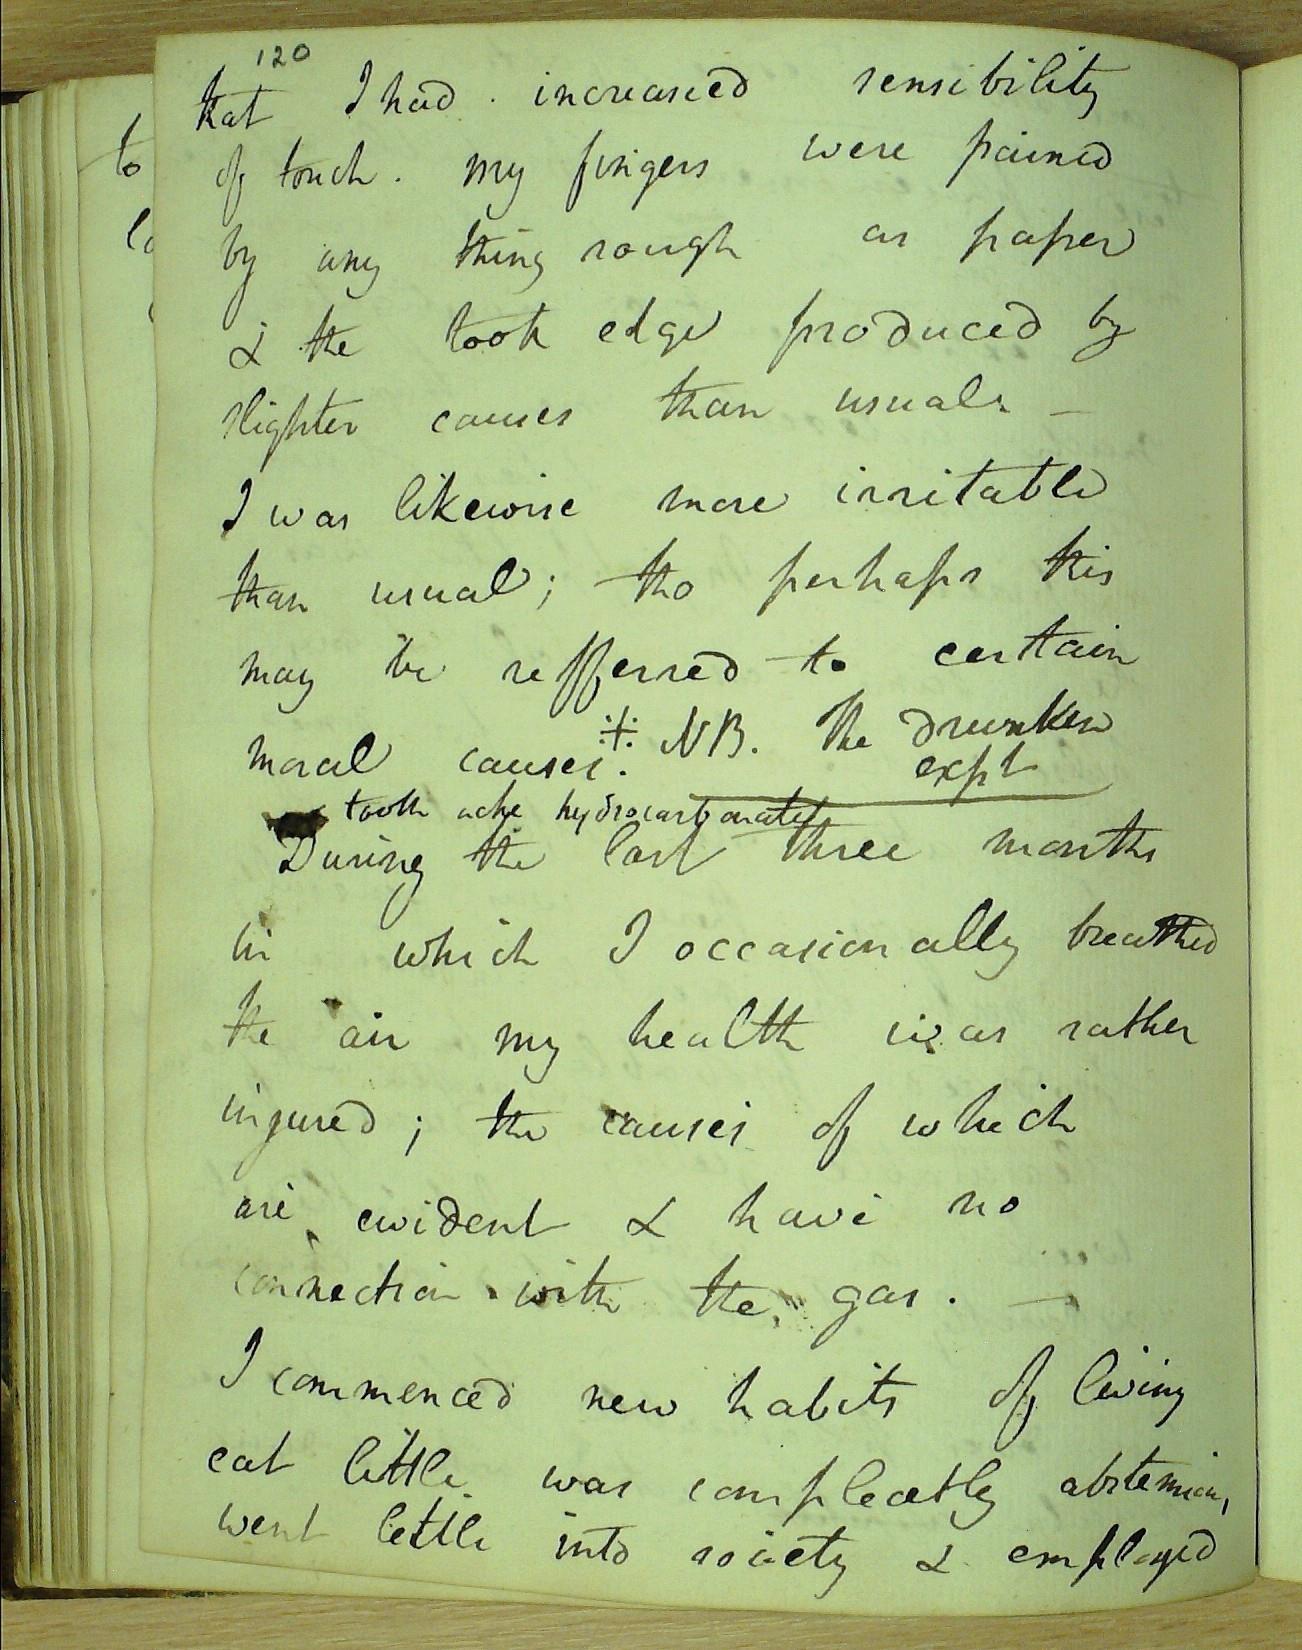 120
that I had increased sensibility
of touch. my fingers were pained
by any thing rough as paper
& the tooth edge produced by
slighter causes than usual. —
I was likewise more irritable
than usual; tho perhaps this
may be refferred to certain
moral causes. NB. The drunken
expt
tooth ache hydrocarbonate
During the last three months
in which I occasionally breathed
the air my health was rather
injured; the causes of which
are evident & have no
connection with the gas. —
I commenced new habits of living
eat little was compleatly abstemious,
went little into society & employed
to